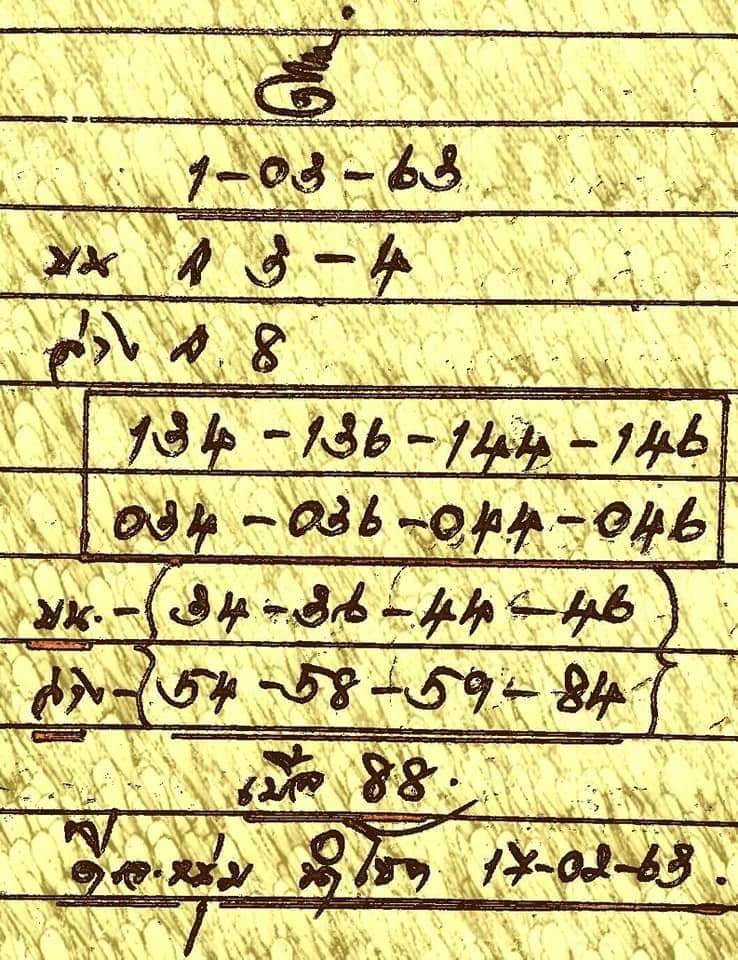 1-03-63
บน ด 3-4
ล่าง ด 8
134-136-144-146
034-036-044-046
บน.-(34-36-44-46)
ล่าง-{54-58-59-84}
เบิ้ล 88.
นำโชค 17-02-63.